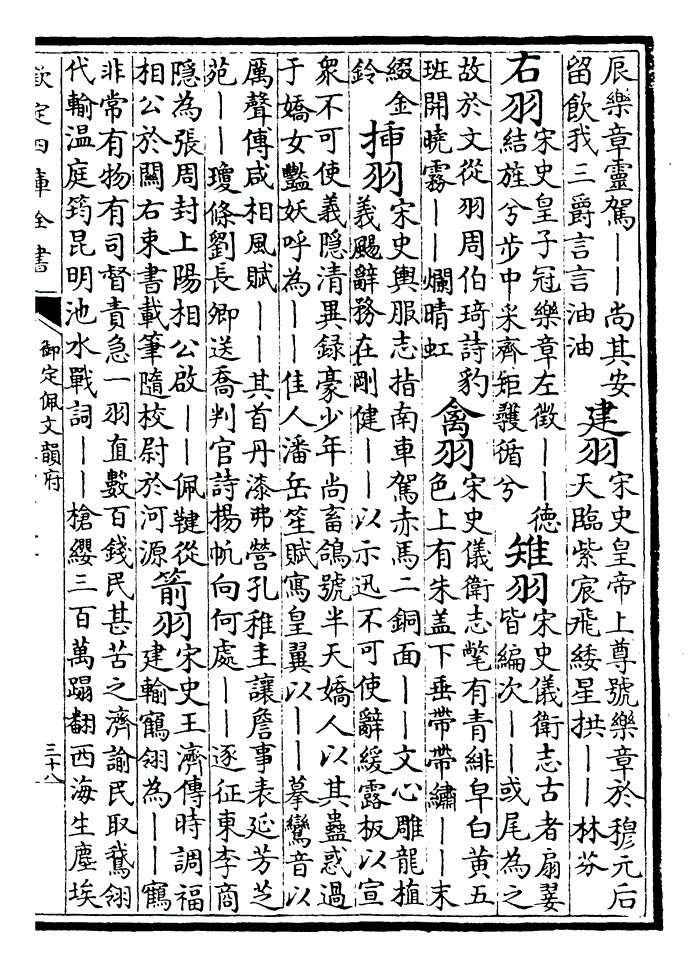 辰樂章靈駕——尚其安
留飲我三爵言言油油
建羽
宋史皇帝上尊號樂章於穆元后
天臨紫宸飛緌星拱——林芬
右羽
宋史皇子冠樂章左徵——德
結旌兮步中采齊矩彠循兮
雉羽
宋史儀衛志古者扇翣
皆編次——或尾為之
故於文從羽周伯琦詩豹
班開曉霧——爛晴虹
禽羽
宋史儀衛志氅有青緋皁白黃五
色上有朱盖下垂帶帶繡——末
綴金
鈴
揷羽
宋史輿服志指南車駕赤馬二銅面——文心雕龍植
義颺辭務在剛健——以示迅不可使辭緩露板以宣
衆不可使義隱清異録豪少年尚畜鴿號半天嬌人以其蠱惑過
于嬌女豔妖呼為——佳人潘岳笙賦寫皇翼以——摹鸞音以
厲聲傅咸相風賦——其首丹漆弗營孔稚圭讓詹事表延芳芝
苑——瓊條劉長卿送喬判官詩揚帆向何處——逐征東李商
隱為張周封上陽相公啟——佩鞬從
相公於關右束書載筆隨校尉於河源
箭羽
宋史王濟傳時調福
建輸鶴翎為——鶴
非常有物有司督責急一羽直數百錢民甚苦之濟諭民取鵞翎
代輸温庭筠昆明池水戰詞——槍纓三百萬蹋翻西海生塵埃
欽定四庫全書
御定佩文韻府
三十八